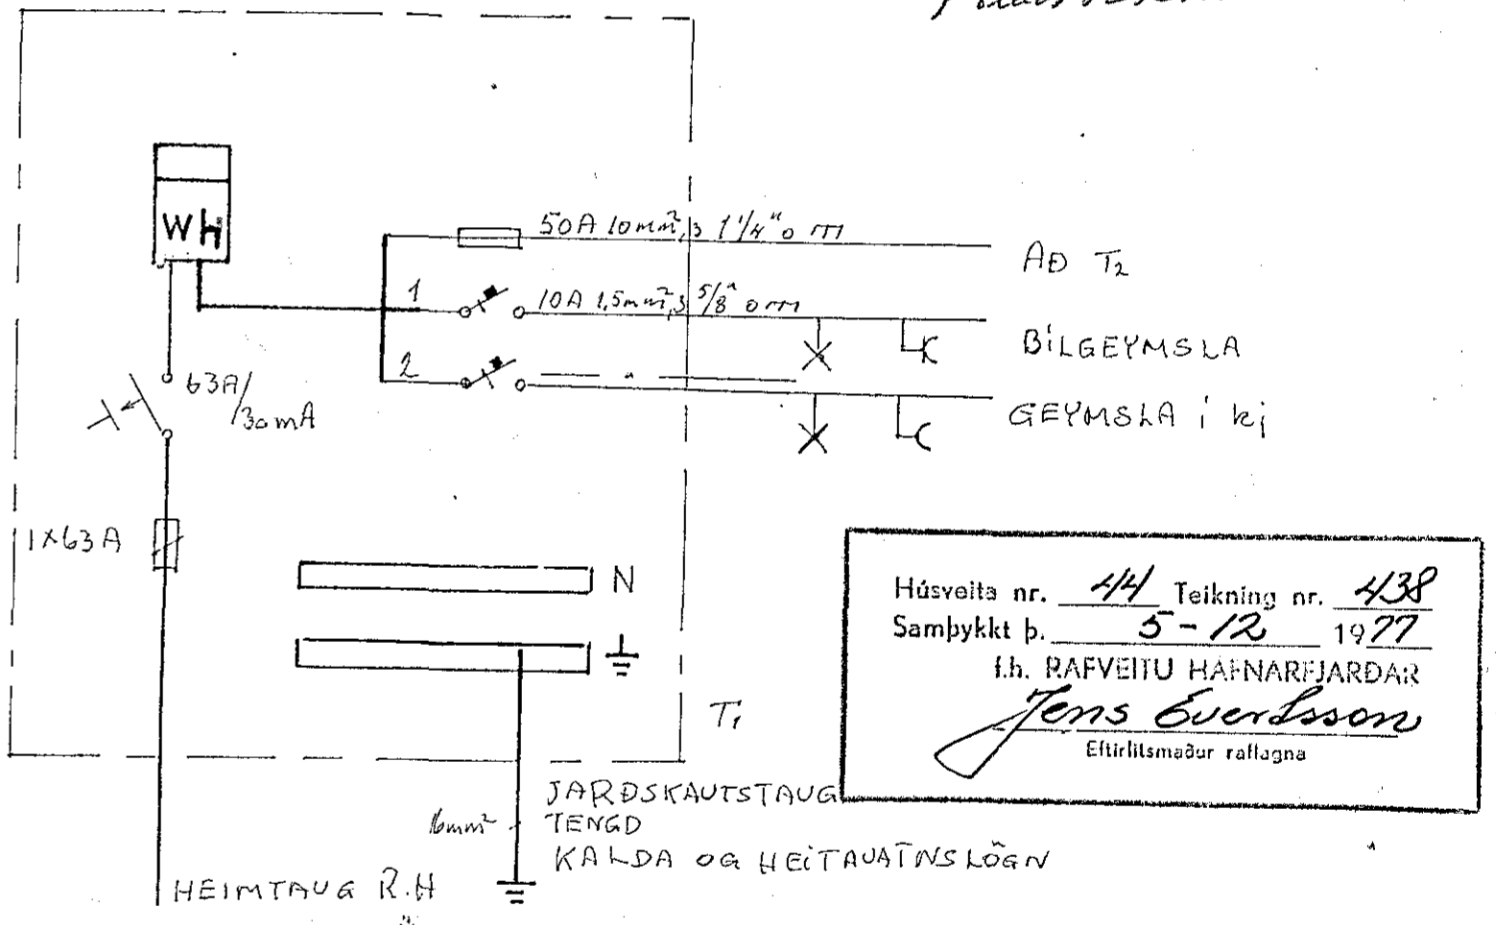 Wh
50A 10mm², 3 1 1/4" o m
AÐ T2
1
10A 1,5mm², 3 5/8" o m
BÍLGEYMSLA
2
— " —
GEYMSLA í kj
63A/30mA
1x63A
N
T1
Húsveita nr. 44 Teikning nr. 438
Samþykkt þ. 5-12 1977
f.h. RAFVEITU HAFNARFJARÐAR
Jens
Eftirlitsmaður raflagna
JARÐSKAUTSTAUG
16mm² TENGD
KALDA OG HEITAVATNSLÖGN
HEIMTAUG R.H